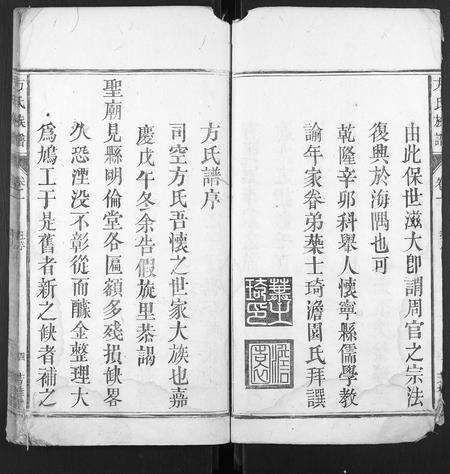 由此保世滋大即謂周官之宗法
復興於海隅也可
乾隆辛卯科舉人懷寧縣儒學教
諭年家眷弟葉士琦澹園氏拜譔
葉士琦印
澹園
方氏譜序
司空方氏吾懷之世家大族也嘉
慶戊午冬余告假旋里恭謁
聖廟見縣明倫堂各匾額多殘損缺畧
久恐湮沒不彰從而醵金整理大
為鳩工于是舊者新之缺者補之
方氏族譜
卷一
四
方氏族譜
卷一